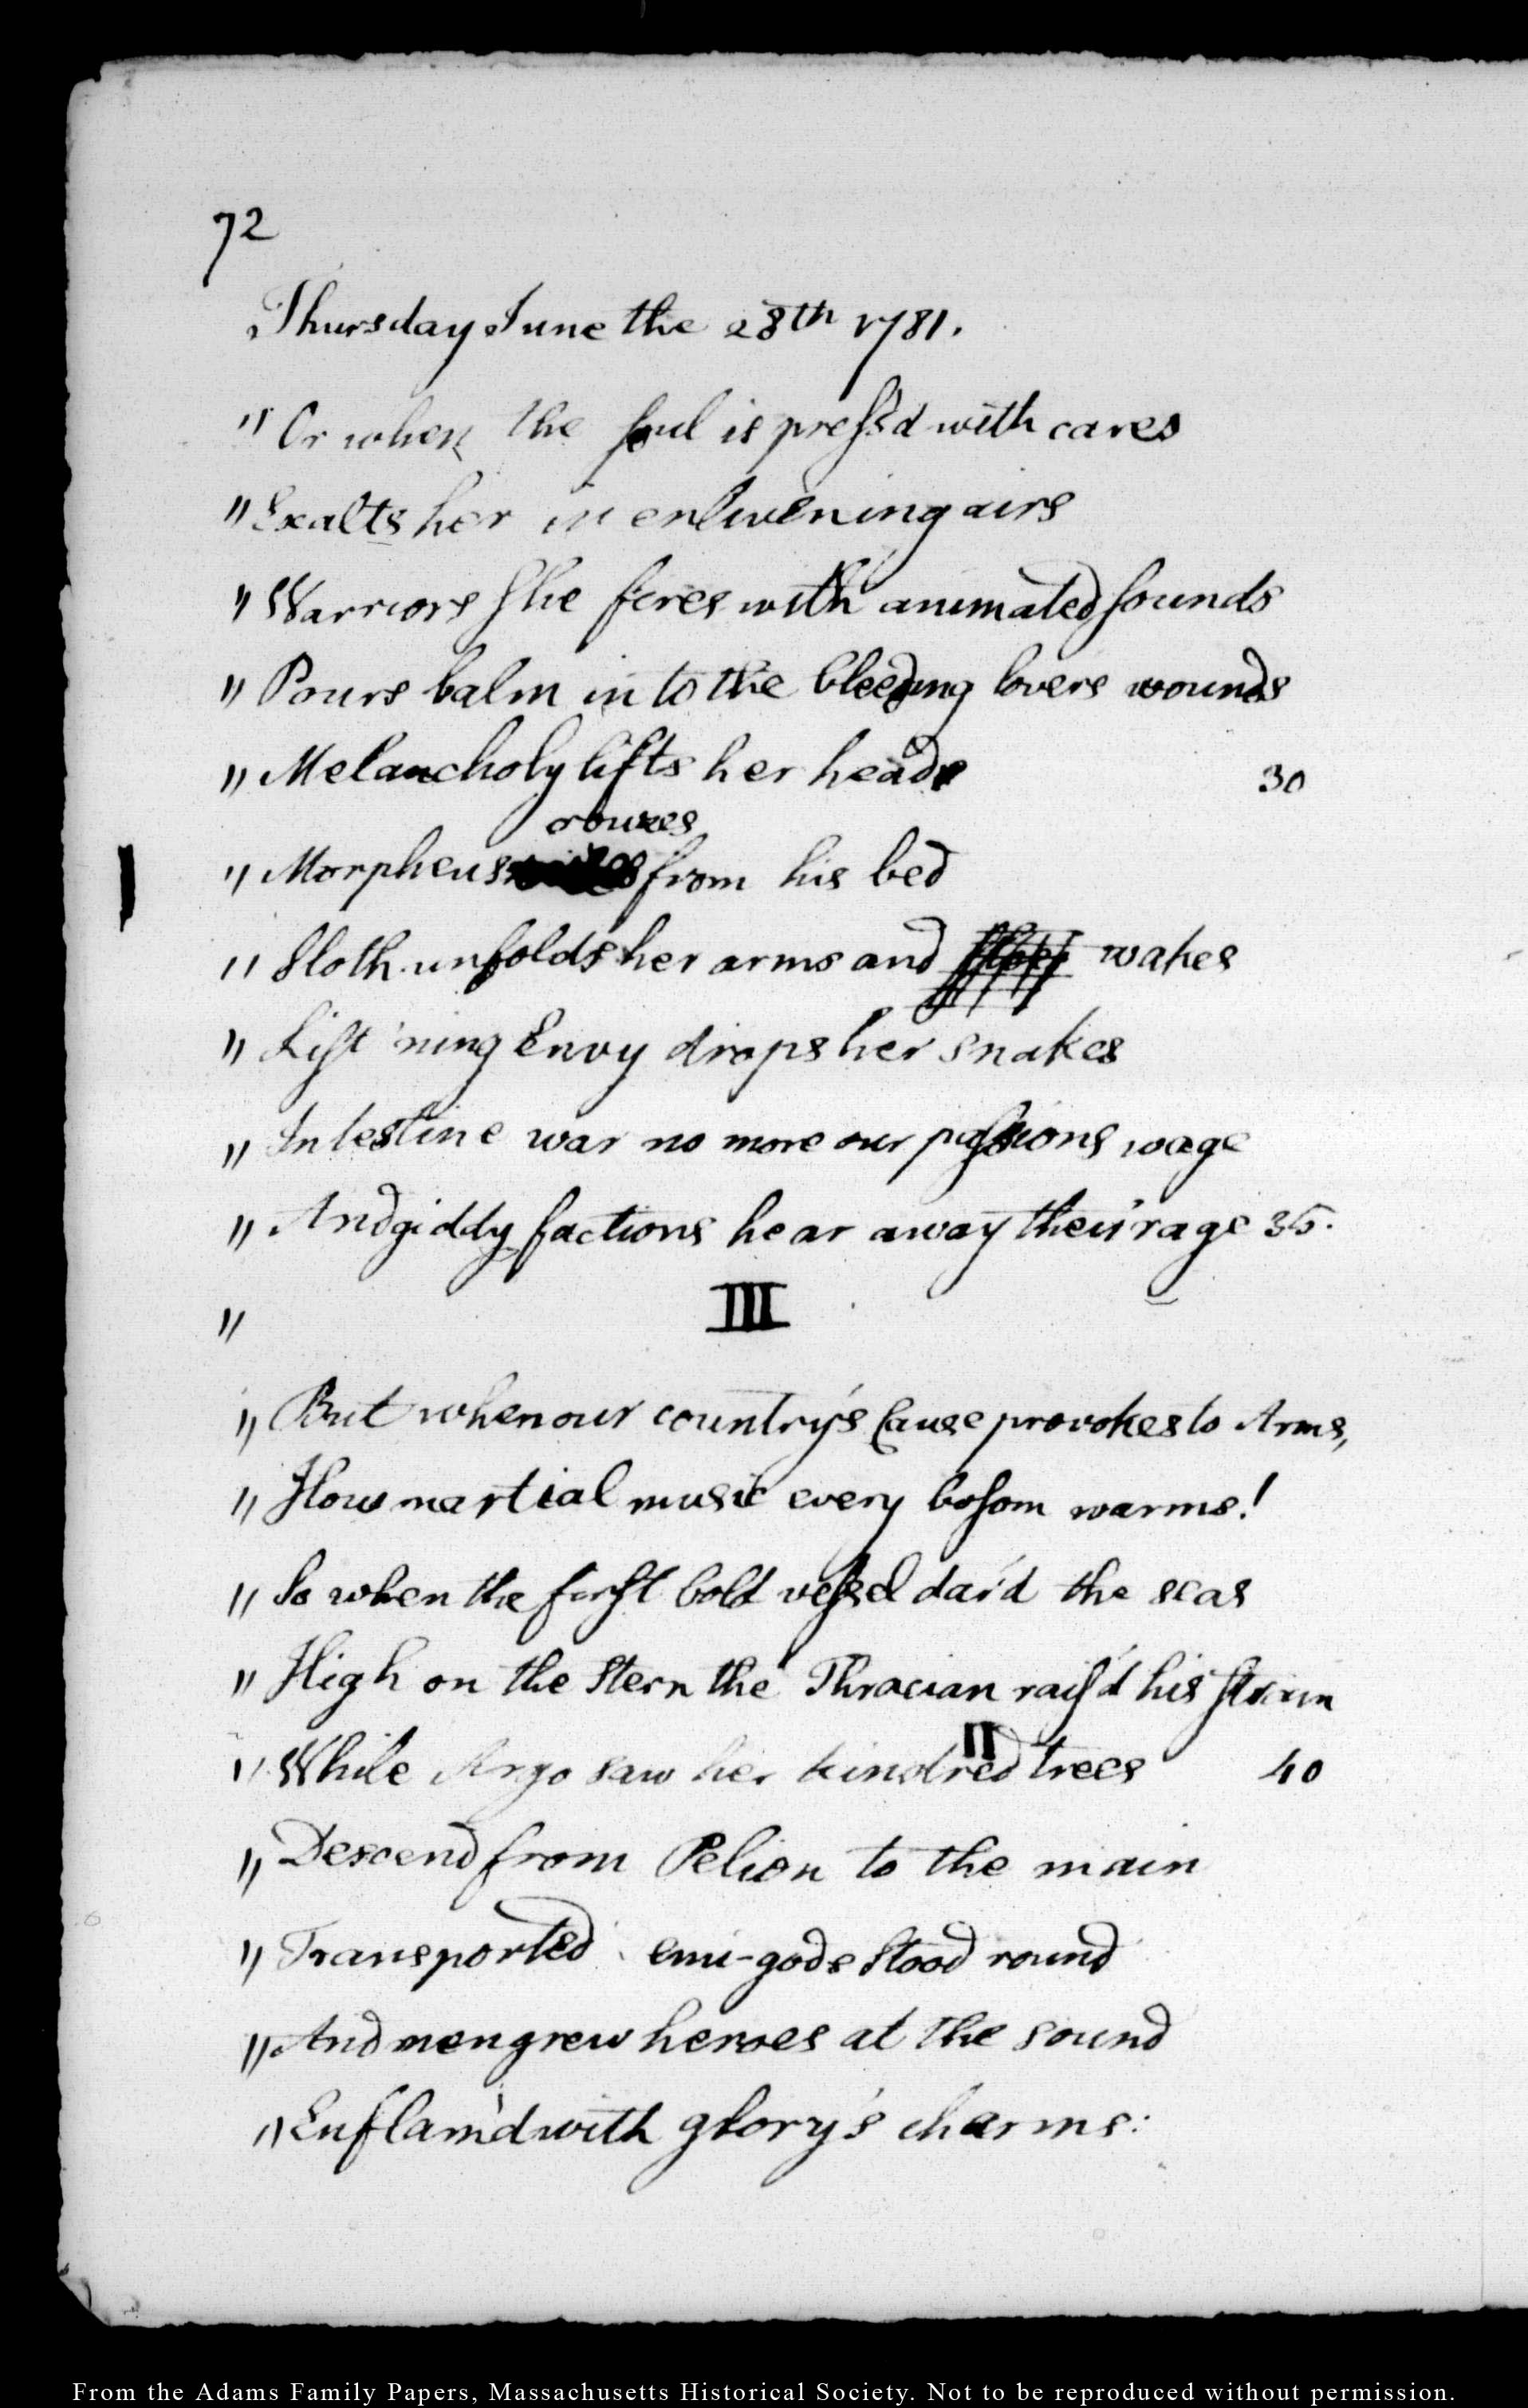 72
Thursday June the 28th 1781.
" Or when the soul is press'd with cares
" Exalts her in enlivening airs
" Warriors she fires with animated sounds
" Pours balm into the bleeding lovers wounds
" Melancholy lifts her head 30
rowzes
" Morpheus from his bed
" Sloth unfolds her arms and wakes
" List'ning Envy drops her snakes
" Intestine war no more our passions wage
" And giddy factions hear away their rage 35.
" III
" But when our country's Cause provokes to Arms,
" How martial music every bosom warms!
" So when the first bold vessel dar'd the seas
" High on the Stern the Thracian rais'd his strain
II
" While Argo saw her kindred trees 40
" Descend from Pelion to the main
" Transported emi-gods Stood round
" And men grew heroes at the sound
" Enflam'd with glory's charms:
From the Adams Family Papers, Massachusetts Historical Society. Not to be reproduced without permission.